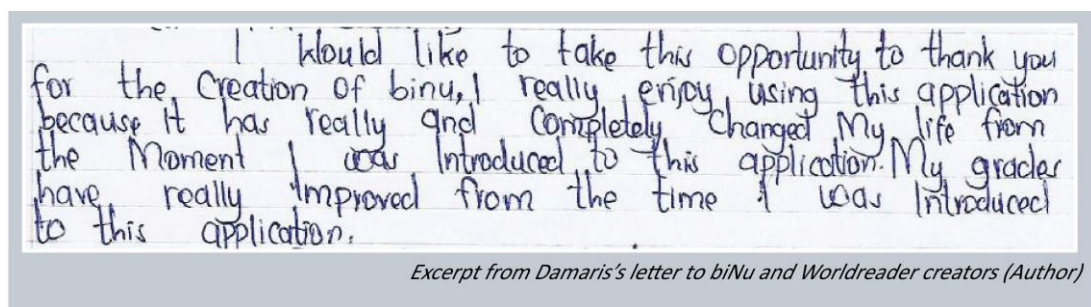 I would like to take this opportunity to thank you
for the creation of binu, I really enjoy using this application
because it has really and completely changed My life from
the Moment I was Introduced to this application. My grades
have really Improved from the time I was Introduced
to this application.
Excerpt from Damaris's letter to biNu and Worldreader creators (Author)